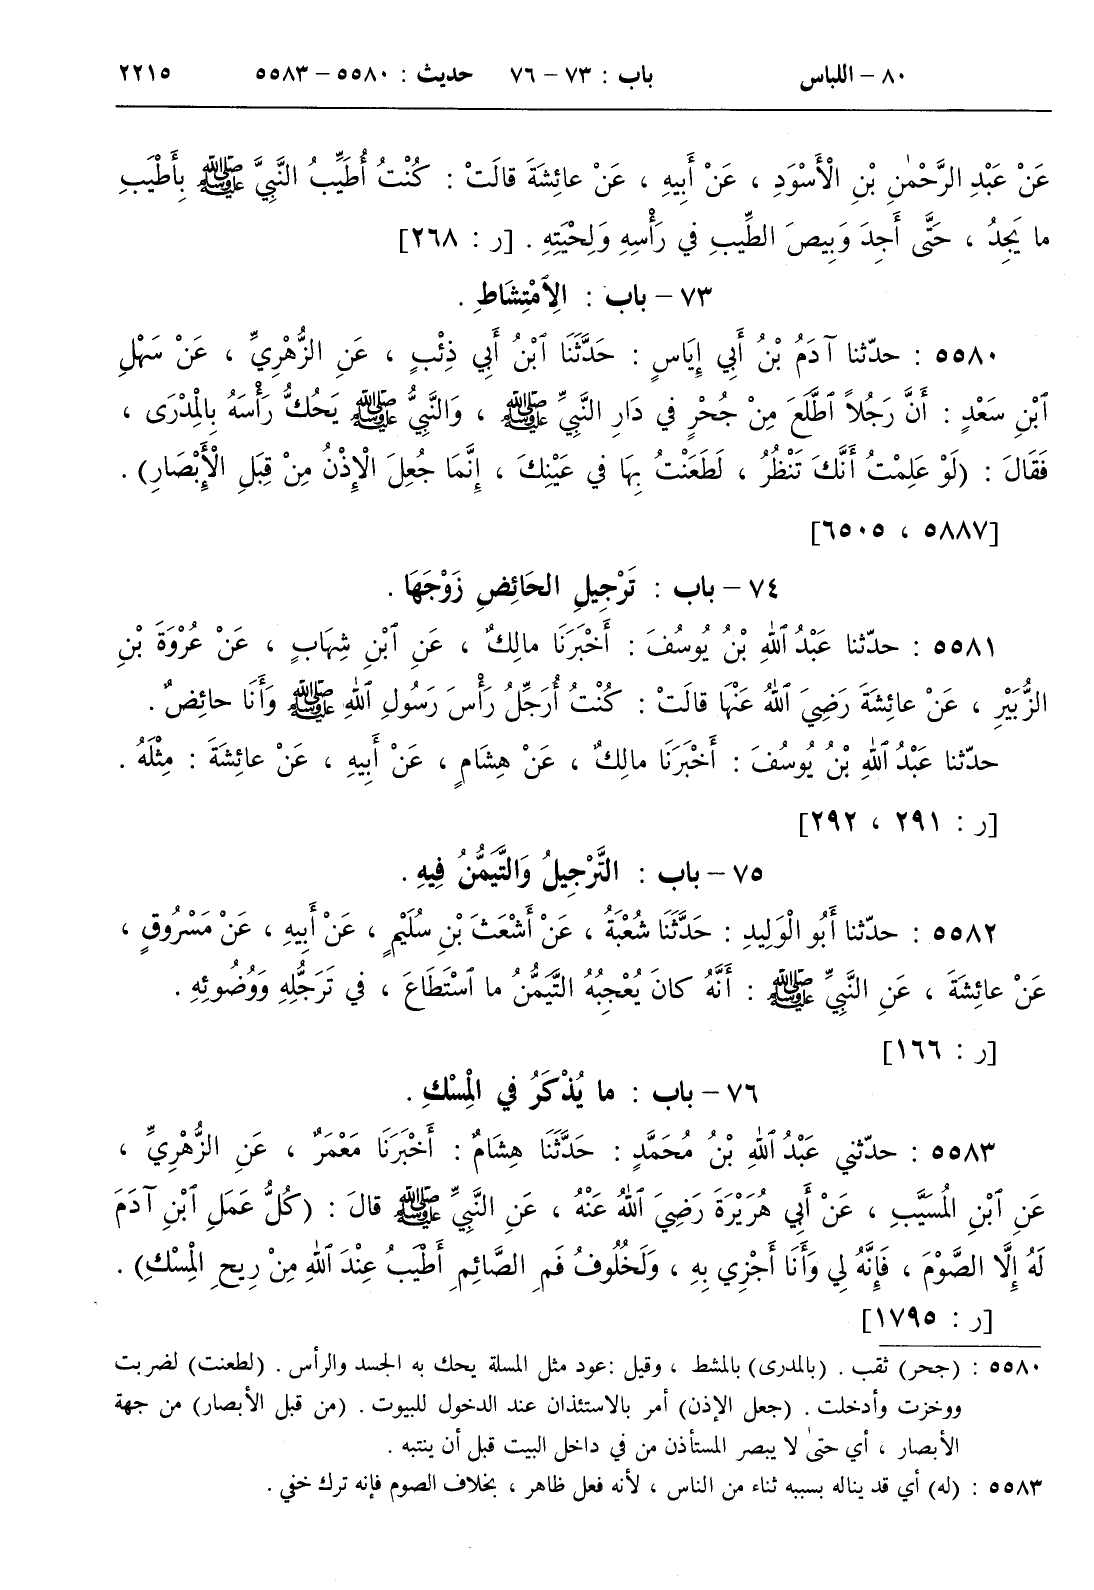 ٨٠ – اللباس باب : ٧٣ – ٧٦ حديث : ٥٥٨٠ – ٥٥٨٣ ٢٢١٥
عَنْ عَبْدِ الرَّحْمٰنِ بْنِ الْأَسْوَدِ ، عَنْ أَبِيهِ ، عَنْ عائِشَةَ قالَتْ : كُنْتُ أُطَيِّبُ النَّبِيَّ ﷺ بِأَطْيَبِ
ما يَجِدُ ، حَتَّى أَجِدَ وَبِيصَ الطِّيبِ في رَأْسِهِ وَلِحْيَتِهِ . [ر : ٢٦٨]
٧٣ – باب : الِٱمْتِشَاطِ .
٥٥٨٠ : حدّثنا آدَمُ بْنُ أَبِي إِيَاسٍ : حَدَّثَنَا ٱبْنُ أَبِي ذِئْبٍ ، عَنِ الزُّهْرِيِّ ، عَنْ سَهْلِ
ٱبْنِ سَعْدٍ : أَنَّ رَجُلاً ٱطَّلَعَ مِنْ جُحْرٍ في دَارِ النَّبِيِّ ﷺ ، وَالنَّبِيُّ ﷺ يَحُكُّ رَأْسَهُ بِالْمِدْرَى ،
فَقَالَ : (لَوْ عَلِمْتُ أَنَّكَ تَنْظُرُ ، لَطَعَنْتُ بِهَا في عَيْنِكَ ، إِنَّمَا جُعِلَ الْإِذْنُ مِنْ قِبَلِ الْأَبْصَارِ) .
[٥٨٨٧ ، ٦٥٠٥]
٧٤ – باب : تَرْجِيلِ الحَائِضِ زَوْجَهَا .
٥٥٨١ : حدّثنا عَبْدُ ٱللهِ بْنُ يُوسُفَ : أَخْبَرَنَا مالِكٌ ، عَنِ ٱبْنِ شِهَابٍ ، عَنْ عُرْوَةَ بْنِ
الزُّبَيْرِ ، عَنْ عائِشَةَ رَضِيَ ٱللهُ عَنْهَا قالَتْ : كُنْتُ أُرَجِّلُ رَأْسَ رَسُولِ ٱللهِ ﷺ وَأَنَا حائِضٌ .
حدّثنا عَبْدُ ٱللهِ بْنُ يُوسُفَ : أَخْبَرَنَا مالِكٌ ، عَنْ هِشَامٍ ، عَنْ أَبِيهِ ، عَنْ عائِشَةَ : مِثْلَهُ .
[ر : ٢٩١ ، ٢٩٢]
٧٥ – باب : التَّرْجِيلُ وَالتَّيَمُّنُ فِيهِ .
٥٥٨٢ : حدّثنا أَبُو الْوَلِيدِ : حَدَّثَنَا شُعْبَةُ ، عَنْ أَشْعَثَ بْنِ سُلَيْمٍ ، عَنْ أَبِيهِ ، عَنْ مَسْرُوقٍ ،
عَنْ عائِشَةَ ، عَنِ النَّبِيِّ ﷺ : أَنَّهُ كانَ يُعْجِبُهُ التَّيَمُّنُ ما ٱسْتَطَاعَ ، في تَرَجُّلِهِ وَوُضُوئِهِ .
[ر : ١٦٦]
٧٦ – باب : ما يُذْكَرُ في الْمِسْكِ .
٥٥٨٣ : حدّثني عَبْدُ ٱللهِ بْنُ مُحَمَّدٍ : حَدَّثَنَا هِشَامٌ : أَخْبَرَنَا مَعْمَرٌ ، عَنِ الزُّهْرِيِّ ،
عَنِ ٱبْنِ الْمُسَيَّبِ ، عَنْ أَبِي هُرَيْرَةَ رَضِيَ ٱللهُ عَنْهُ ، عَنِ النَّبِيِّ ﷺ قالَ : (كُلُّ عَمَلِ ٱبْنِ آدَمَ
لَهُ إِلَّا الصَّوْمَ ، فَإِنَّهُ لِي وَأَنَا أَجْزِي بِهِ ، وَلَخُلُوفُ فَمِ الصَّائِمِ أَطْيَبُ عِنْدَ ٱللهِ مِنْ رِيحِ الْمِسْكِ) .
[ر : ١٧٩٥]
٥٥٨٠ : (جحر) ثقب . (بالمدرى) بالمشط ، وقيل :عود مثل المسلة يحك به الجسد والرأس . (لطعنت) لضربت
ووخزت وأدخلت . (جعل الإذن) أمر بالاستئذان عند الدخول للبيوت . (من قبل الأبصار) من جهة
الأبصار ، أي حتىٰ لا يبصر المستأذن من في داخل البيت قبل أن ينتبه .
٥٥٨٣ : (له) أي قد يناله بسببه ثناء من الناس ، لأنه فعل ظاهر ، بخلاف الصوم فإنه ترك خفي .